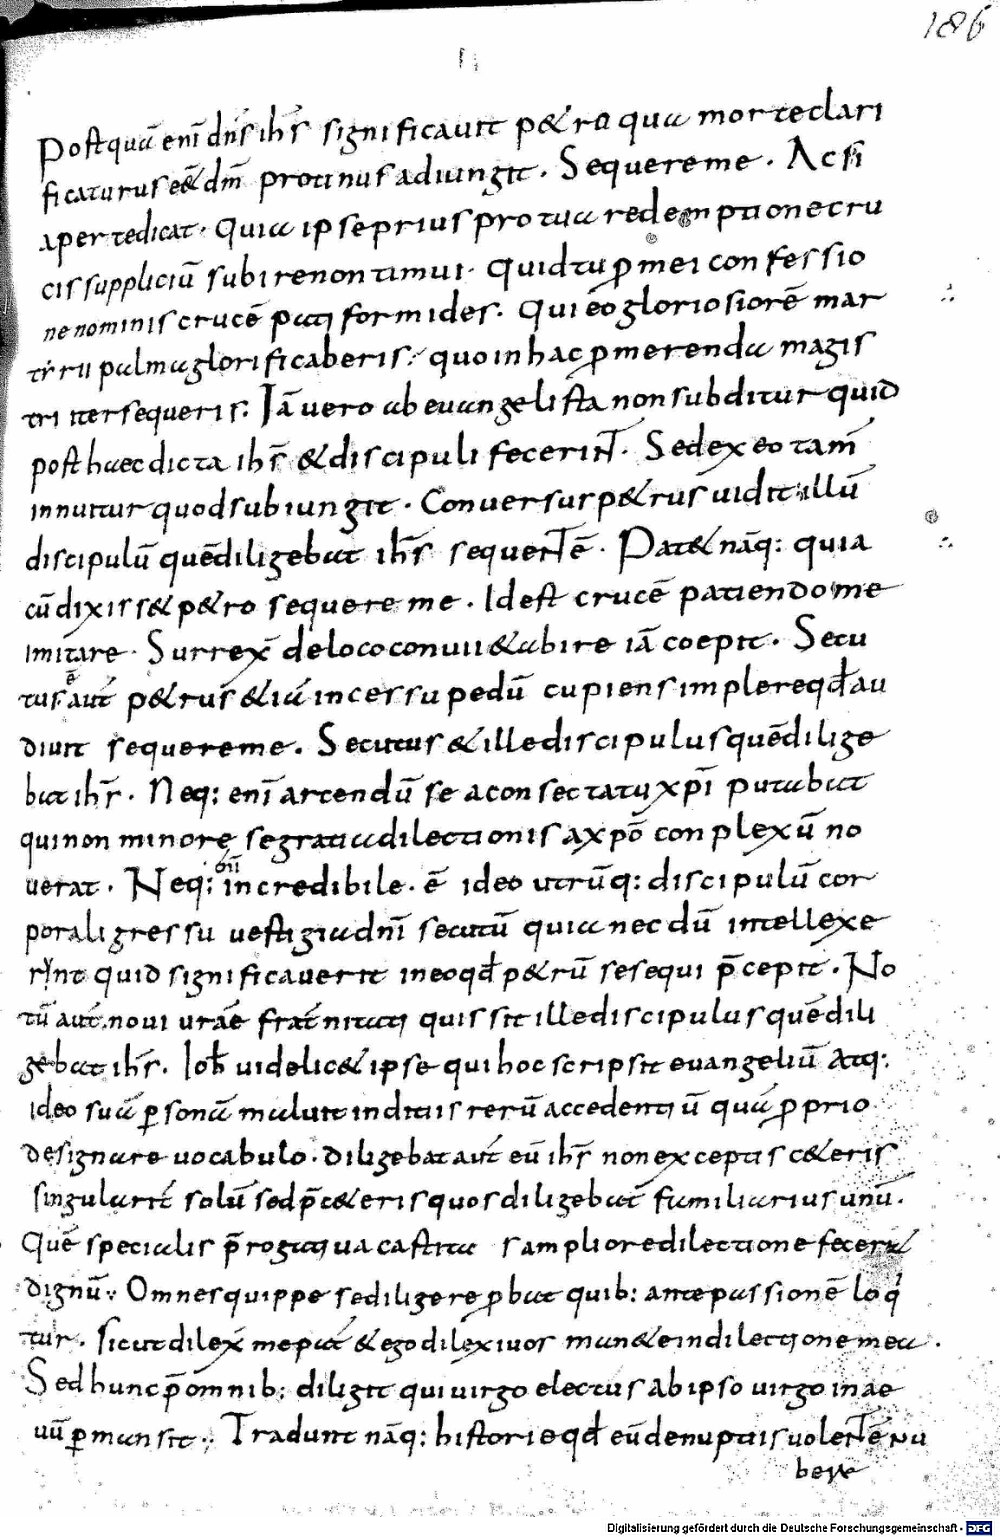 186
Postquā enī dn̄s ih̄s significavit p&ro qua morte clari
ficaturus e&̄ dm̄ protinus adiungit. Sequere me. Ac si
aperte dicat. Quia ipse prius pro tua redemptione cru
cis suppliciū subire non timui. Quid tu ꝑ mei confessio
ne nominis crucē pati formides. Qui eo gloriosiorē mar
tyrii palma glorificaberis. quo in hac ꝑmerenda magis
tri iter sequeris. Iā vero ab evangelista non subditur quid
post haec dicta ih̄s & discipuli fecerint. Sed ex eo tam̄
innuitur quod subiungit. Conversus p&rus vidit illū
discipulū quē diligebat ih̄s sequentē. Pat& nāq: quia
cū dixiss& p&ro sequere me. Id est crucē patiendo me
imitare. Surrex̄ de loco convivii & abire iā coepit. Secu
tus ē aut̄ p&rus & iā incessu pedū cupiens implere qd̄ au
divit sequere me. Secutus & ille discipulus quē dilige
bat ih̄s. Neq: enī arcendū se a consectatu xpī putabat
qui non minore se gratia dilectionis a xpō conplexū no
verat. Neq: incredibile ē ideo utrūq: discipulū cor
porali gressu vestigia dnī secutū quia nec dū intellexe
rint quid significaverit in eo qd̄ p&rū se sequi p̄cepit. No
tū aut̄ novi vrāe frat̄nitati quis sit ille discipulus quē dili
gebat ih̄s. Ioh̄ videlic& ipse qui hoc scripsit evangeliū Atq:
ideo suā ꝑsonā maluit indiciis rerū accedentiū quā ꝓprio
designare vocabulo. diligebat aut̄ eū ih̄s non exceptis c&eris
singularit̄ solū sed p̄ c&eris quos diligebat familiarius unū.
Quē specialis p̄rogativa castita s ampliore dilectione fecer&
dignū. Omnes quippe se diligere ꝓbat quib: ante passionē loq
tur. sicut dilex̄ me pat̄ & ego dilexi vos man&e in dilectione mea.
Sed hunc p̄ omnib: diligit qui virgo electus ab ipso virgo in ae
vū ꝑmansit. Tradunt nāq: historie qd̄ eū de nuptiis volentē nu
bere
Digitalisierung gefördert durch die Deutsche Forschungsgemeinschaft - DFG